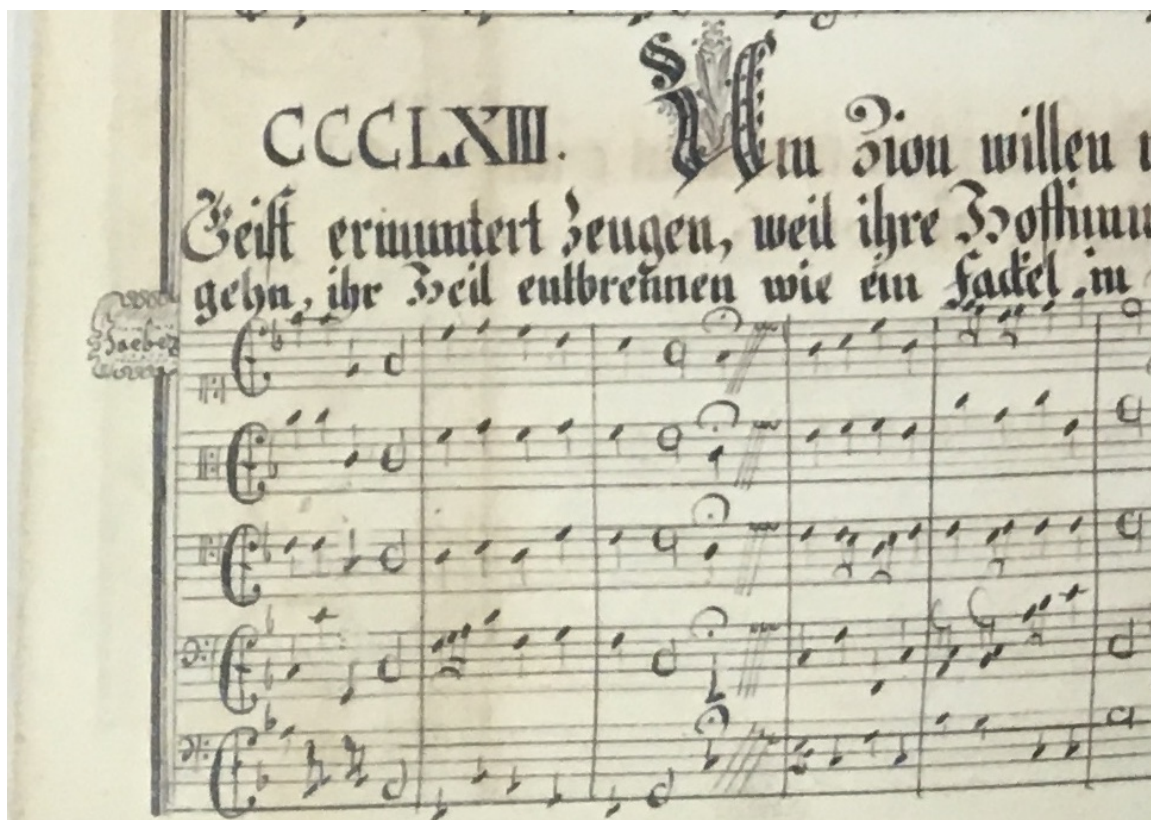 CCCLXIII. Um Zion willen
Geist ermuntert Zeugen, weil ihre
gehn, ihr Heil entbrennen wie ein Fackel in
Jaebez